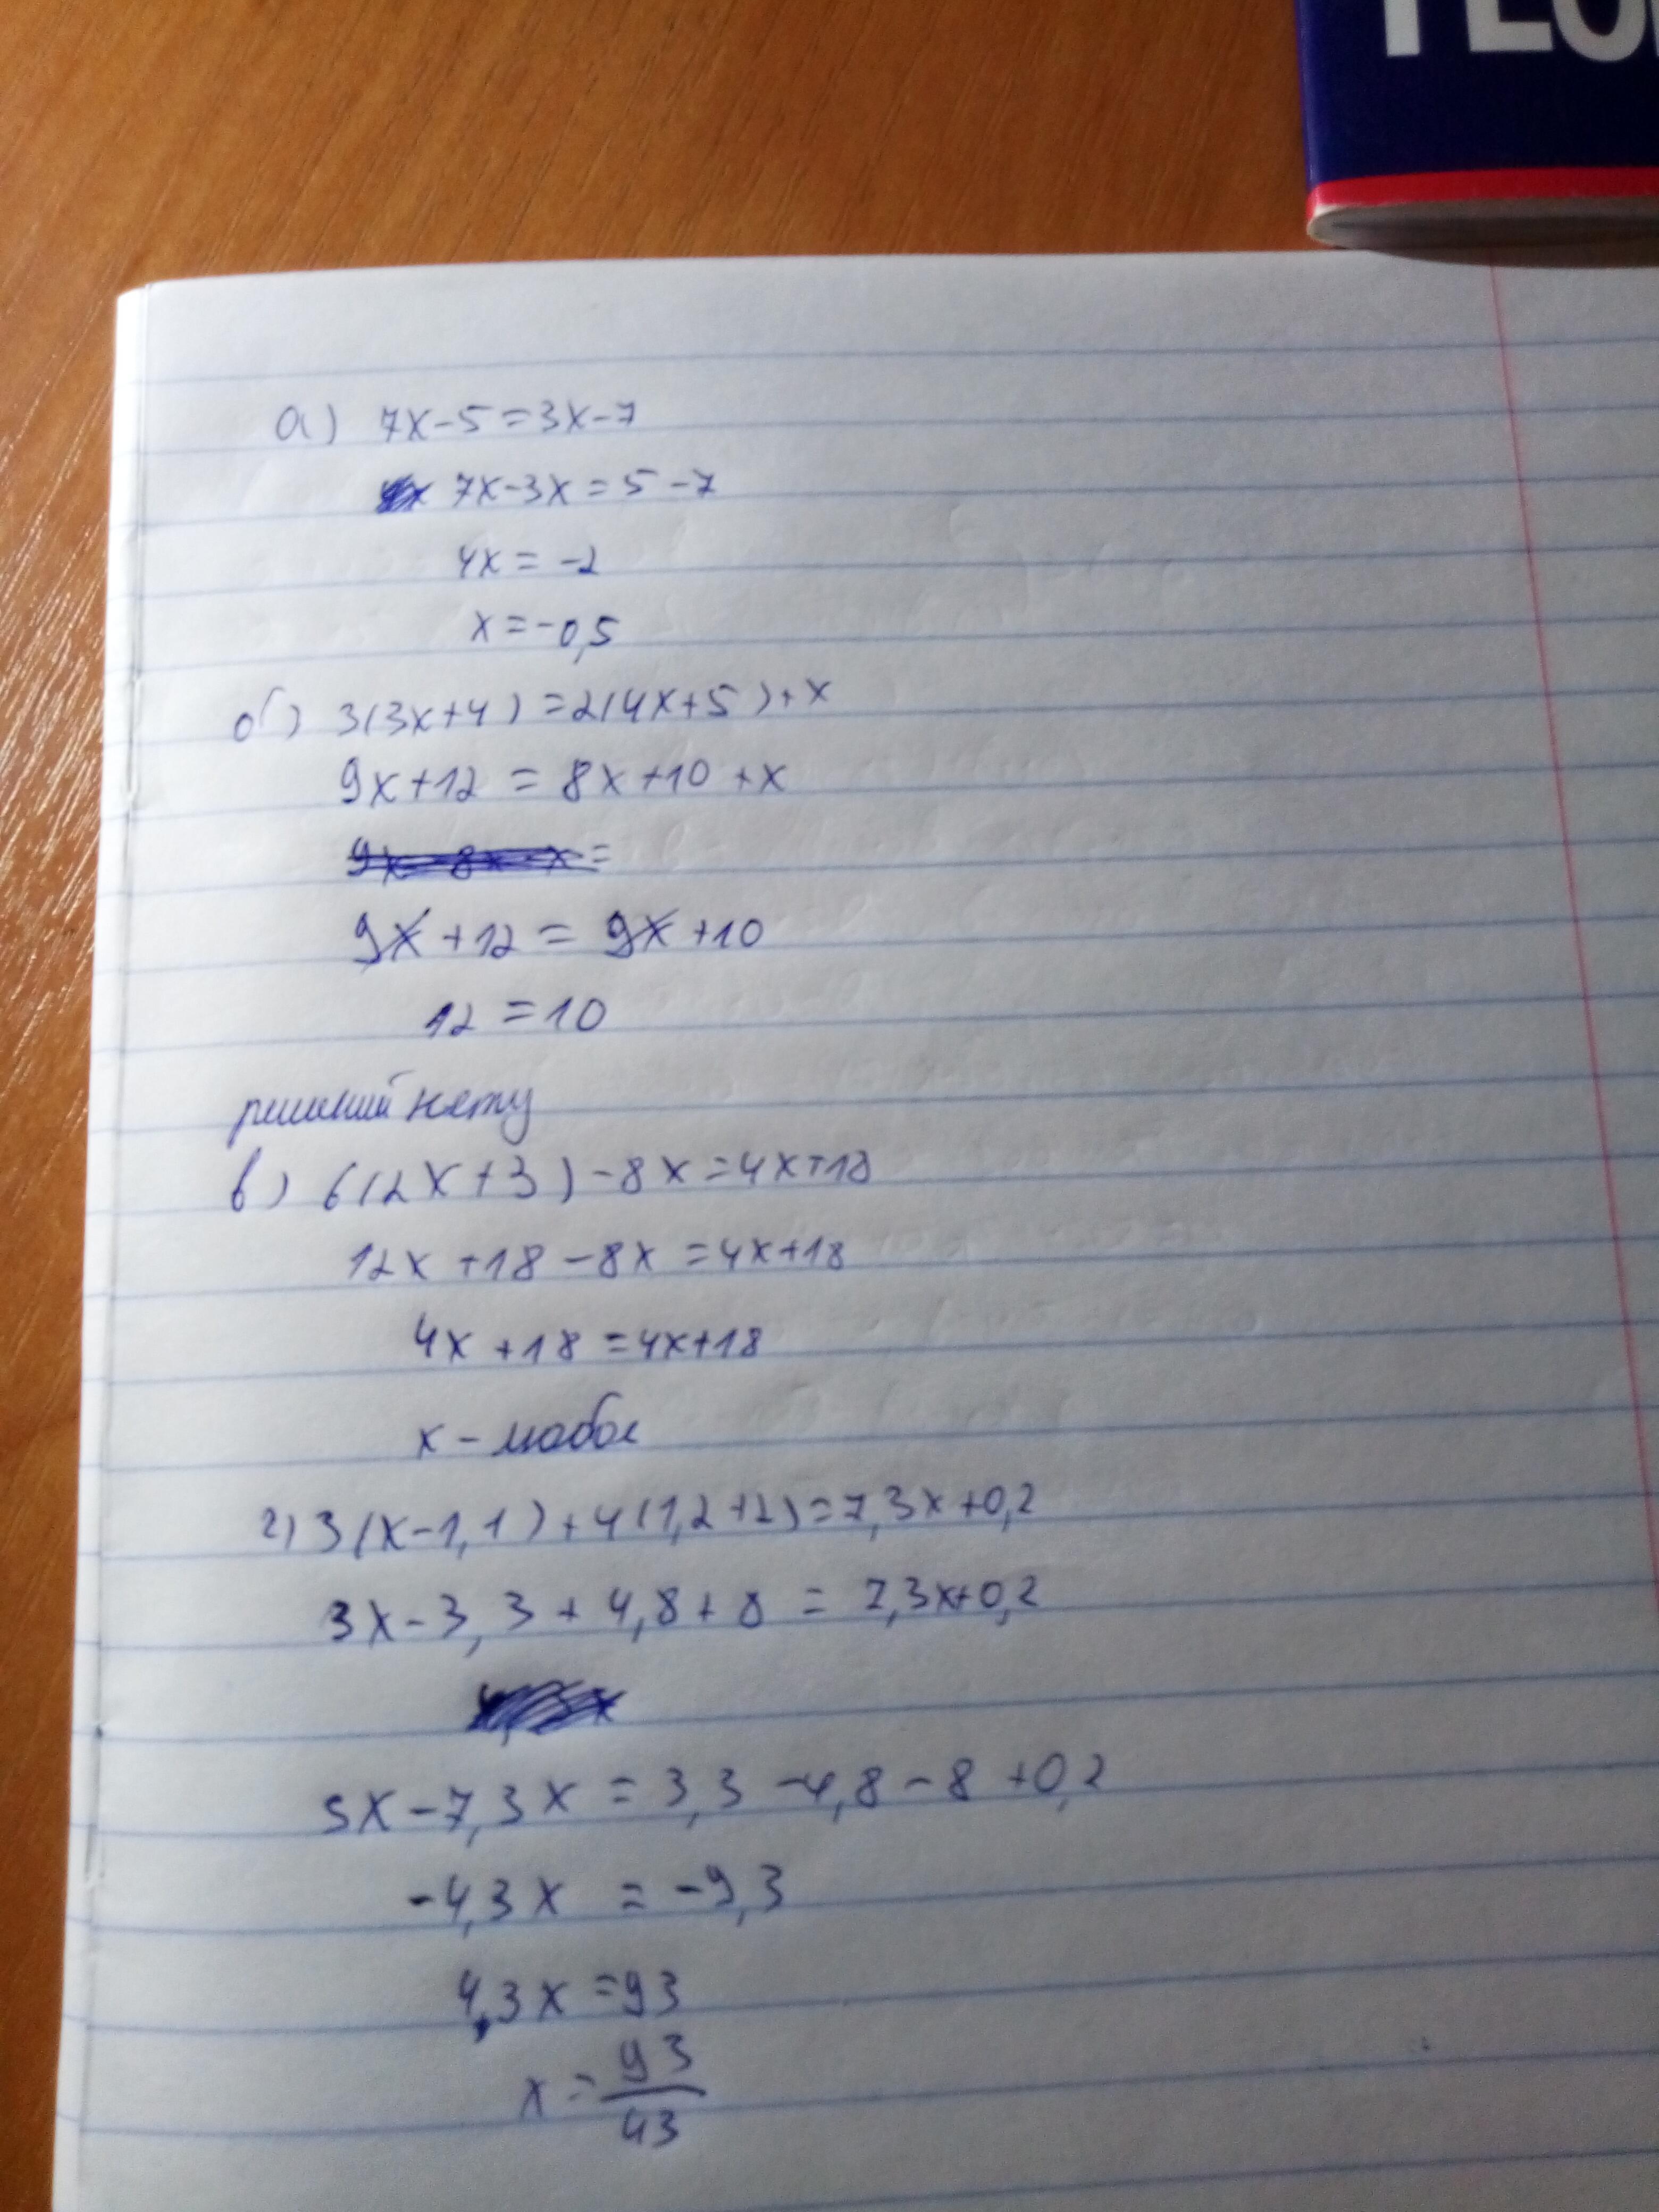 ГЕО
а) 7x-5=3x-7
7x-3x=5-7
4x=-2
x=-0,5
б) 3(3x+4)=2(4x+5)+x
9x+12=8x+10+x
9x-8x-x=
9x+12=9x+10
12=10
решений нету
в) 6(2x+3)-8x=4x+18
12x+18-8x=4x+18
4x+18=4x+18
x-любое
г) 3(x-1,1)+4(1,2+2)=7,3x+0,2
3x-3,3+4,8+8=7,3x+0,2
3x-7,3x=3,3-4,8-8+0,2
-4,3x=-9,3
4,3x=93
x=93/43